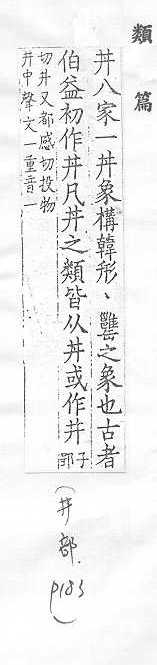 類篇
丼八家一丼象構韓形丶𦉥之象也古者
伯益初作丼凡丼之類皆从丼或作井子郢
切丼又都感切投物
井中聲文一重音一
(井部.
p183)